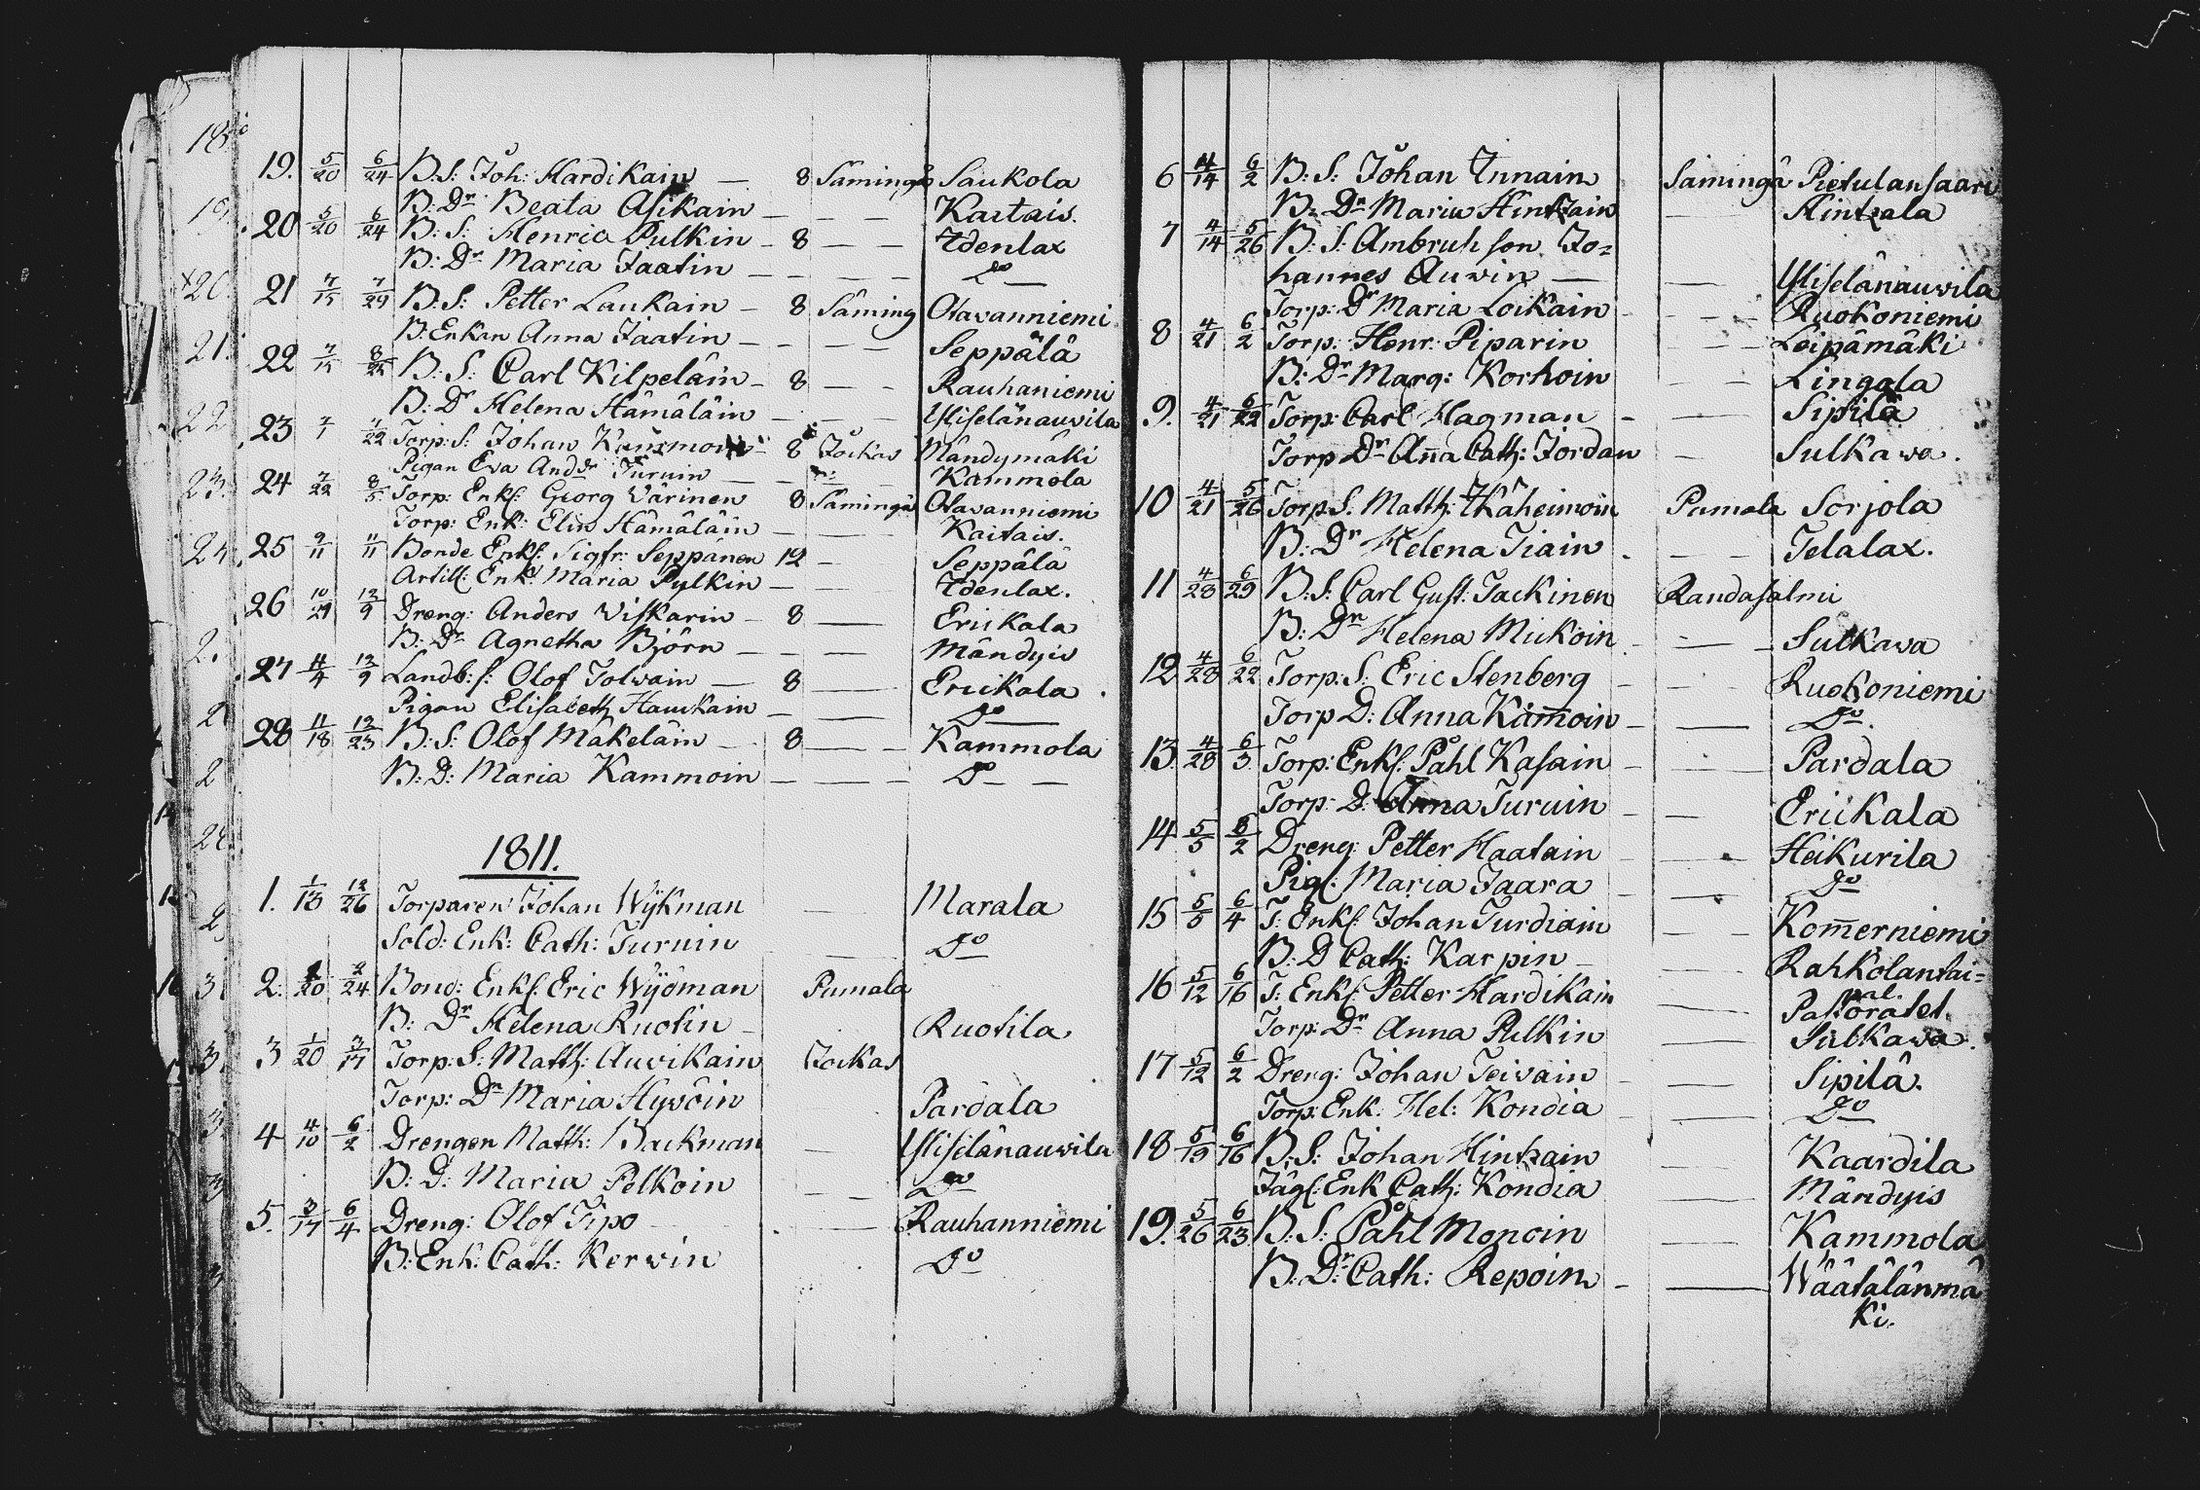 19. 5/20 6/24 B: S: Joh: Hardikain — 8 Såmingå Saukola
B: Dr Beata Asikain — — — Kaitais.
20 5/20 6/24 B: S: Henric Pulkin — 8 — — Idenlax
B: Dr Maria Jaatin — — — — Do —
21 7/15 7/29 B: S: Petter Laukain — 8 Såming Otavanniemi
B. Enkan Anna Jaatin — — — — Seppälä
22 7/15 B: S: Carl Kilpeläin — 8 — — Rauhaniemi
B: Dr Helena Hämäläin — — — Yliselänauvila
23 Torp: S: Johan 8 Jockas Mändymäki
Pigan Eva Andr Turuin — — — Kammola
24 7/22 8/5 Torp: Enkl: Georg Wärinen 8 Såmingå Otavanniemi
Torp: Enk: Elin Hämäläin — — — Kaitais.
25 9/11 11/11 Bonde Enkl: Sigfr: Seppänen 12 — Seppälä
Artill: Enk: Maria Pylkin — — — Idenlax.
26 10/29 12/9 Dreng: Anders Wiskarin — 8 — Erickala
B: Dr Agnetha Björn — — — Mändyis
27 11/4 12/9 Landb: s: Olof Tolwain — 8 — Erickala
Pigan Elisabeth Hauckain — — Do —
28 11/18 12/23 B: S: Olof Mäkeläin — 8 — — Kammola
B: D: Maria Kammoin — — — Do —
1811.
1. 1/13 12/26 Torparen Johan Wykman — Marala
Sold: Enk: Cath: Turuin — Do
2. 2/24 Bond: Enkl: Eric Wyöman Pumala
B: Dr Helena Ruotin — Ruotila
3 1/20 3/17 Torp: S: Matth: Auvikain Jockas
Torp: Dr Maria Hyvöin Pardala
4 4/10 6/2 Drengen Matth: Backman — Yliselänauwila
B: D: Maria Pelkoin — — Do
5. 3/17 6/4 Dreng: Olof Tipo — — Rauhanniemi
B: Enk: Cath: Kerwin Do
6 4/14 6/2 B: S: Johan Innain Såmingå Pietulansaari
B: Dr Maria Hintzain — Hintzala
7 4/14 5/26 B: S: Ambruh son Jo=
hannes Auwin — — Yliselänauwila
Torp: Dr Maria Loikain — — Ruokoniemi
8 4/21 6/2 Torp: Henr: Piparin — — Leipämäki
B: Dr Marg: Korhoin — — Lingala
9. 4/21 6/22 Torp: Carl Hagman — — Sipilä
Torp Dr Aña Cath: Jordan — Sulkawa.
10 4/21 5/26 Torp: S. Matth: Pumala Sorjola
B: Dr Helena Tiain — — Telalax.
11 4/28 6/29 B: S: Carl Gust: Tackinen Randasalmi
B: Dr Helena Mickoin — — Sulkawa
12 4/28 6/22 Torp: S: Eric Stenberg — — Ruokoniemi
Torp D: Anna Kåmoin — — Do.
13. 4/28 6/3 Torp: Enkl: Påhl Kasain — — Pardala
Torp: D: Anna Turuin — — Erickala
14 5/5 6/2 Dreng: Petter Haatain — — Heikurila
Pigl: Maria Jaara — — Do
15 5/5 6/4 T: Enkl: Johan Turdiain — Kom̄erniemi
B: D Cath: Karpin — — Rahkolantai=
pal.
16 5/12 6/16 T: Enkl: Petter Hardikain — Pastoratet
Torp: Dr Anna Pulkin — Sulkawa.
17 5/12 6/2 Dreng: Johan Teivain — — Sipilä.
Torp: Enk: Hel: Kondia — — Do
18 5/19 6/16 B: S: Johan Hintzain — Kaardila
Jägl: Enk Cath: Kondia — Mändyis
19. 5/26 6/23 B: S: Påhl Monoin — Kammola
B: Dr Cath: Repoin — — Wäätälänmä
ki.